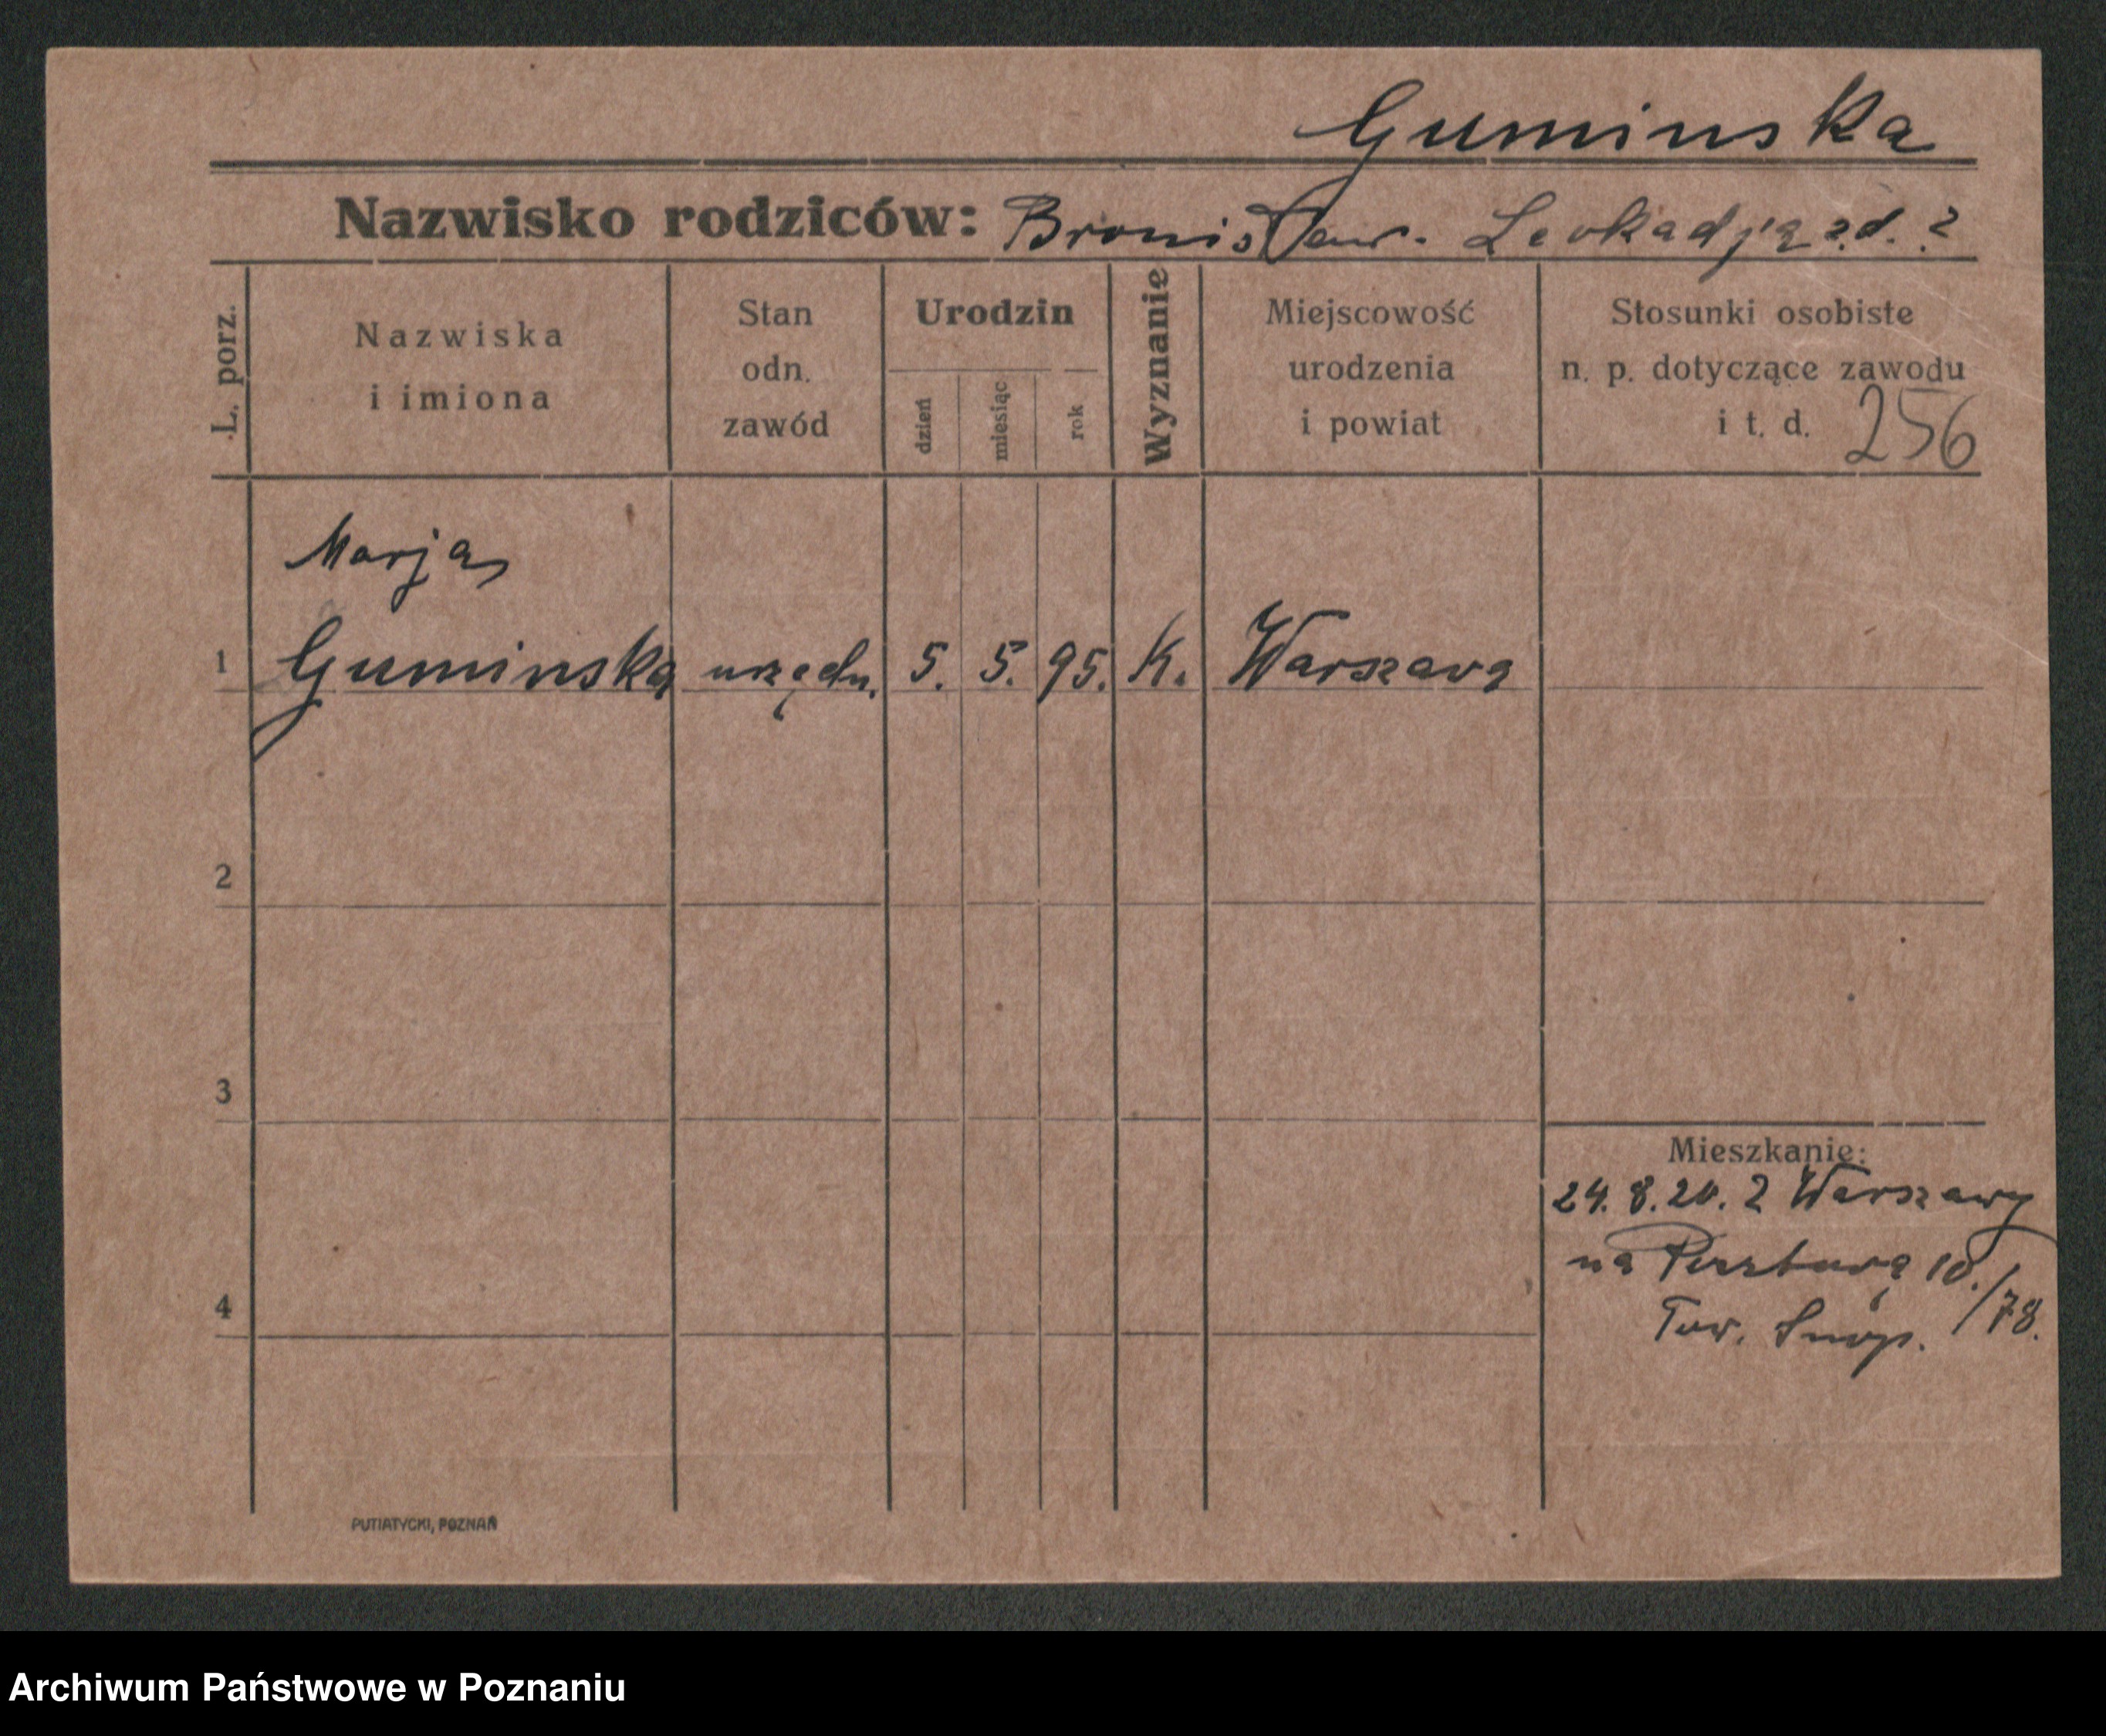 Guminska
Nazwisko rodziców: Bronisław. Leokadja z.d. ?
L. porz.
Nazwiska
i imiona
Stan
odn.
zawód
Urodzin
dzień
miesiąc
rok
Wyznanie
Miejscowość
urodzenia
i powiat
Stosunki osobiste
n. p. dotyczące zawodu
i t. d. 256
Marja
1 Guminska urzędn. 5. 5. 95. K. Warszawa
2
3
4
Mieszkanie:
24. 8. 20. z Warszawy
na 10.
Tow. /78.
PUTIATYCKI, POZNAŃ
Archiwum Państwowe w Poznaniu